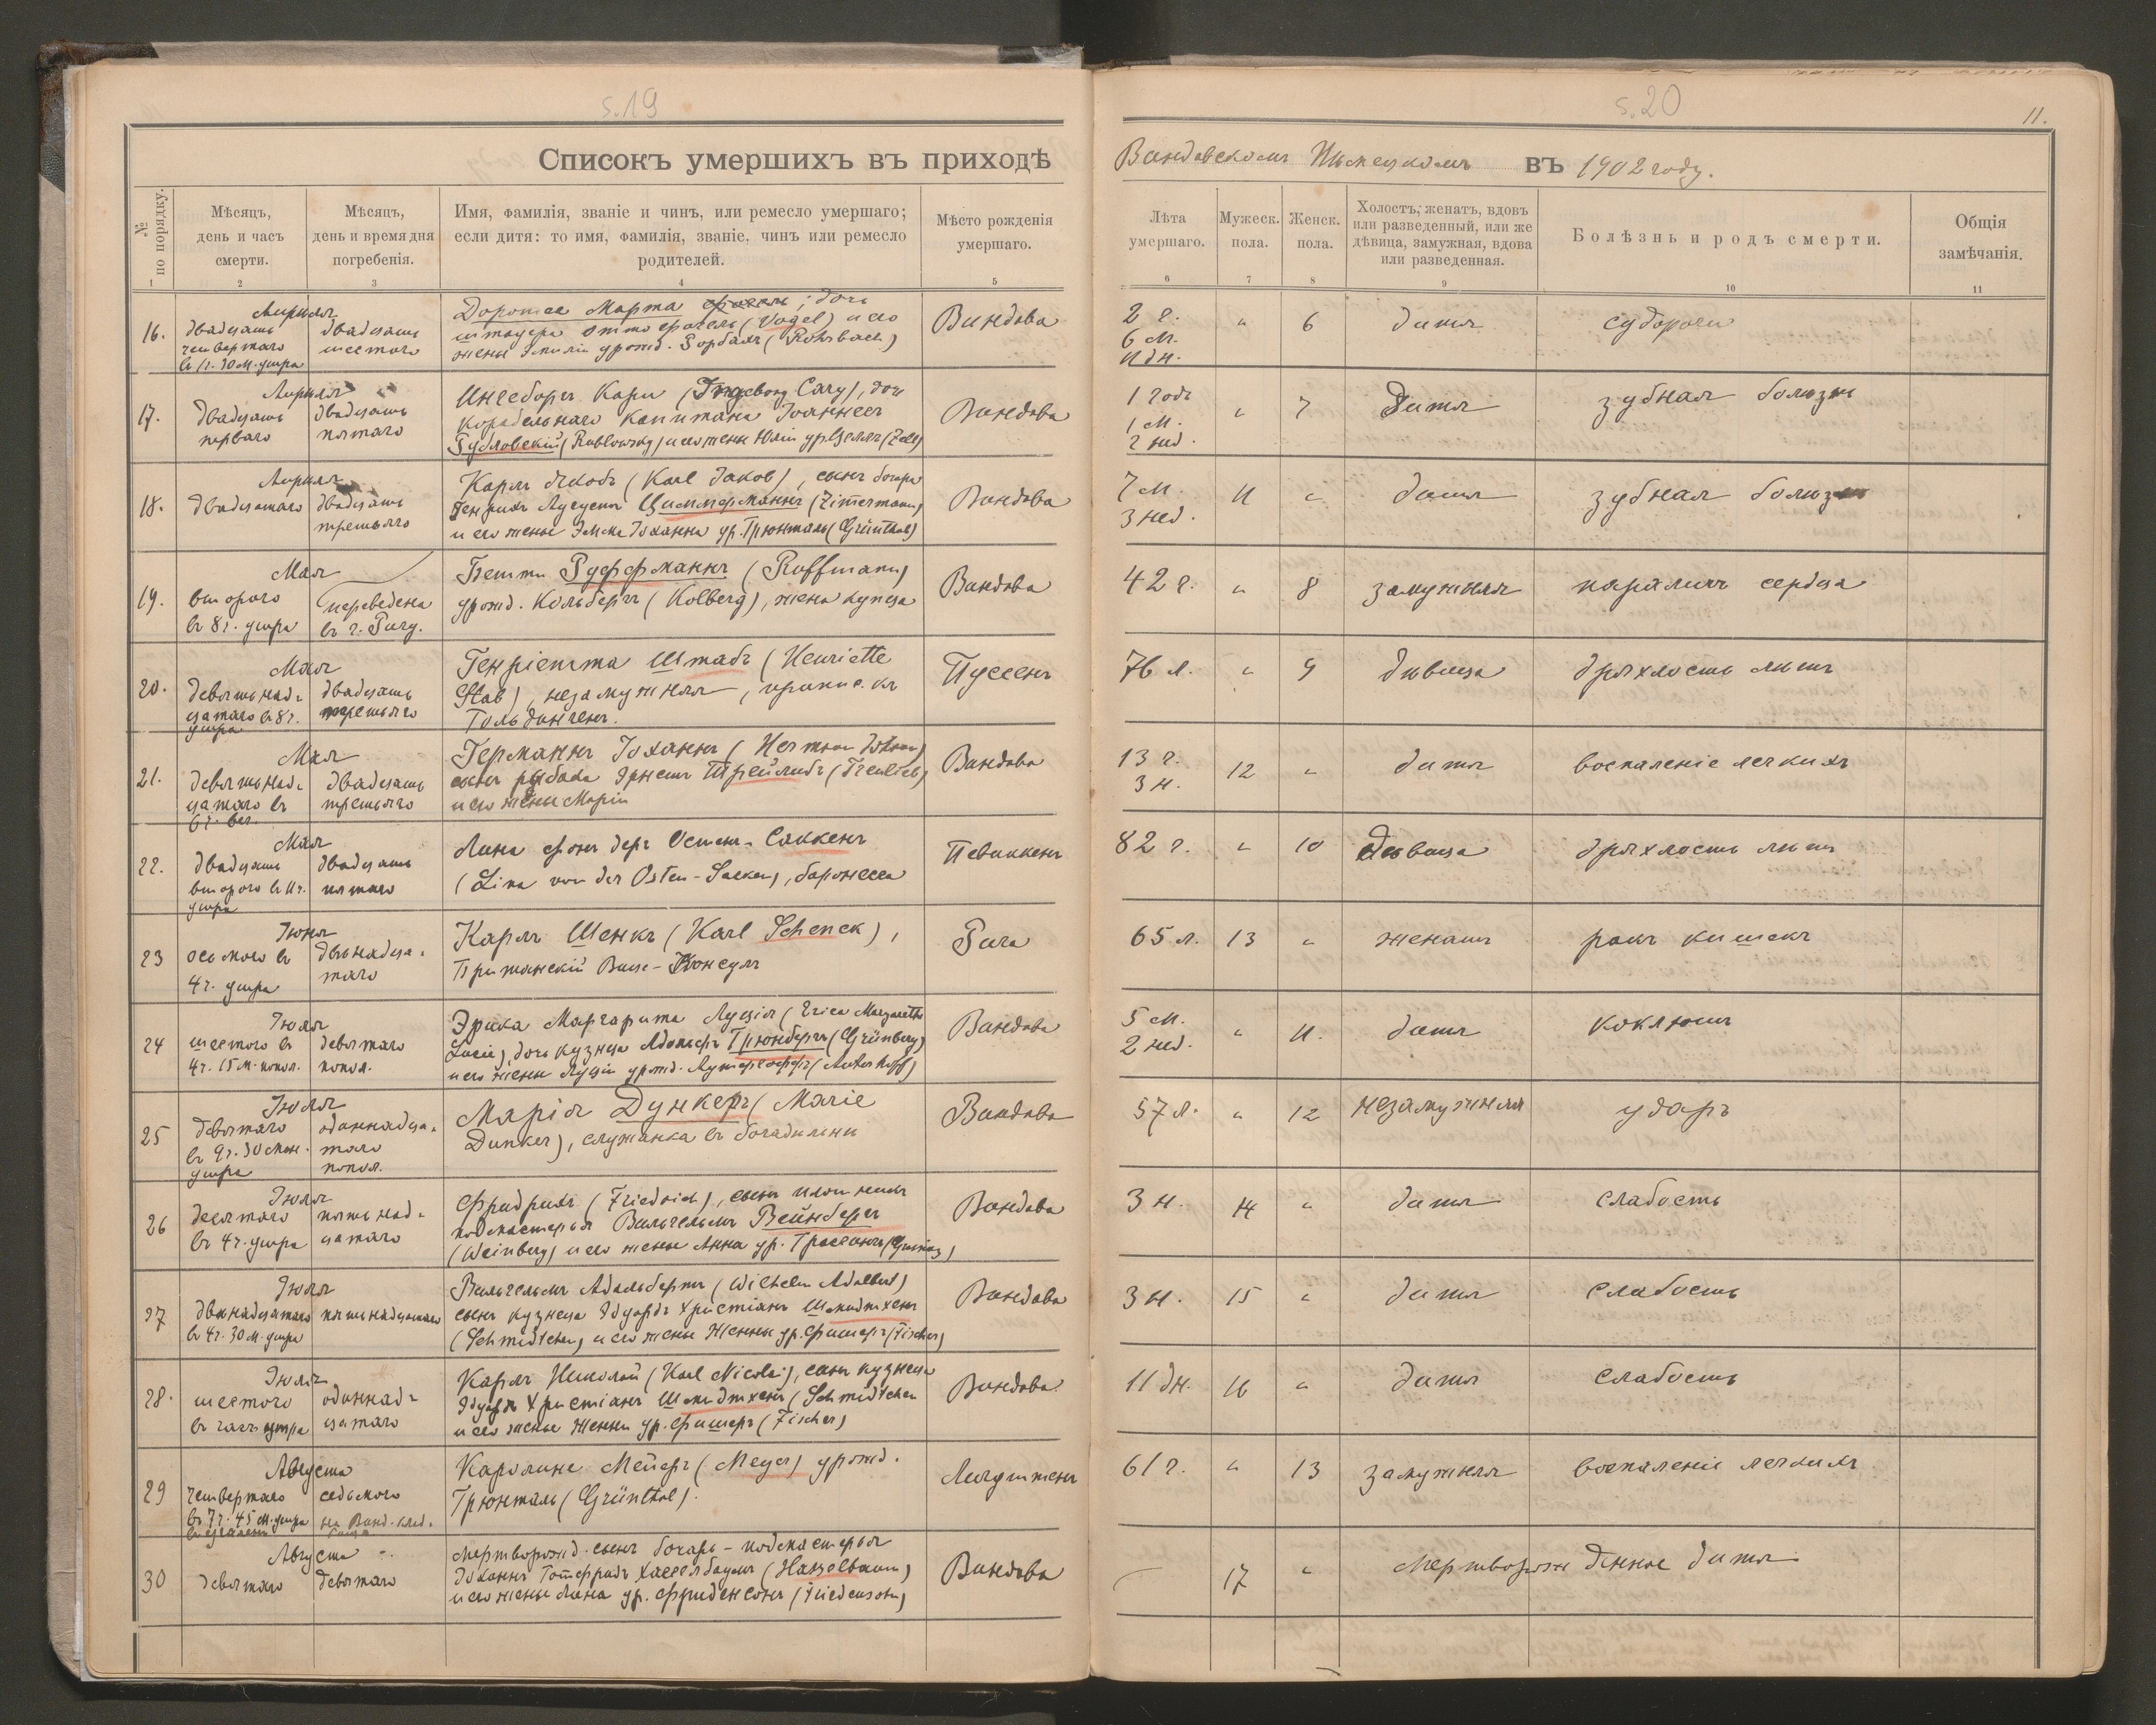 s.19
Списокъ умершихъ въ приходѣ
№ по порядку.
Мѣсяцъ,
день и часъ
смерти.
Мѣсяцъ,
день и время дня
погребенія.
Имя, фамилія, званіе и чинъ, или ремесло умершаго;
если дитя: то имя, фамилія, званіе, чинъ или ремесло
родителей.
Мѣсто рожденія
умершаго.
1 2 3 4 5
16.
Апрѣля
двадцать
четвертаго
въ 1 ч. 30 м. утра
двадцать
шестого
Доротеа Марта Фогель; дочь
штауера Отто Фогель (Vogel) и его
жены Эмиліи урожд. Рорбахъ (Rohrbach)
Виндава
17.
Апрѣля
двадцать
перваго
двадцать
пятаго
Ингеборгъ Кари (Ingeborg Cary), дочь
корабельнаго капитана Іоаннесъ
Рубловскій (Rublowsky) и его жены Юліи ур. Целлъ (Zell)
Виндава
18.
Апрѣля
двадцатаго
двадцать
третьяго
Карлъ Якобъ (Karl Jakob), сынъ бочара
Генрихъ Августъ Циммерманнъ (Zimermann)
и его жены Эмма Іоханна ур. Грюнталь (Grünthal)
Виндава
19.
Мая
второго
въ 8 ч. утра
переведена
въ г. Ригу.
Бетти Руффманнъ (Ruffmann)
урожд. Кольбергъ (Kolberg), жена купца
Виндава
20.
Мая
девятнад-
цатаго въ 8 ч.
утра
двадцать
третьяго
Генріетта Штабъ (Henriette
Stab), незамужняя, припис. къ
Гольдингенъ.
Пуссенъ
21.
Мая
девятнад-
цатаго въ
6 ч. веч.
двадцать
третьяго
Германнъ Іоханнъ (Herman Johan)
сынъ рыбака Эрнстъ Трейлибъ (Treulieb)
и его жены Маріи
Виндава
22.
Мая
двадцать
второго въ 11 ч.
утра
двадцать
пятаго
Лина фонъ деръ Остенъ-Саккенъ
(Lina von der Osten-Sacken), баронесса
Певиккенъ
23
Іюня
осьмого въ
4 ч. утра
двѣнадца-
таго
Карлъ Шенкъ (Karl Schenck),
Британскій Вице-Консулъ
Рига
24
Іюля
шестого въ
4 ч. 15 м. попол.
девятаго
попол.
Эрика Маргарита Луція (Erica Margaretha
Lucie), дочь кузнеца Адольфъ Грюнбергъ (Grünberg)
и его жены Луціи урожд.
Виндава
25
Іюля
девятаго
въ 9 ч. 30 мин.
утра
одиннадца-
таго
попол.
Марія Дункеръ (Marie
Dunker), служанка въ богадѣльни
Виндава
26
Іюля
десятаго
въ 4 ч. утра
пятнад-
цатаго
Фридрихъ (Friedrich), сынъ
подмастерья Вильгельмъ Вейнбергъ
(Weinberg) и его жены Анна ур.
Виндава
27
Іюля
двѣнадцатаго
въ 4 ч. 30 м. утра
пятнадцатаго
Вильгельмъ Адальбертъ (Wilhelm Adalbert)
сынъ кузнеца Эдуардъ Христіанъ Шмидтхенъ
(Schmidtchen) и его жены Женни ур. Фишеръ (Fischer)
Виндава
28.
Іюля
шестого
въ часъ утра
одиннад-
цатаго
Карлъ Николай (Karl Nicolai), сынъ кузнеца
Эдуардъ Христіанъ Шмидтхенъ (Schmidtchen
и его жены Женни ур. Фишеръ (Fischer)
Виндава
29
Августа
четвертаго
въ 7 ч. 45 м. утра
седьмого
на Винд. клад-
бища
Каролине Мейеръ (Meyer) урожд.
Грюнталь (Grünthal).
30
Августа
девятаго
девятаго
Мертворожд. сынъ бочаръ-подмастерья
Іоханнъ Готфридъ Хассельбаумъ (Hasselbaum)
и его жены Лина ур. Фриденсонъ (Friedensohn)
Виндава
s.20
11.
Виндавскомъ Нѣмецкомъ въ 1902 году.
Лѣта
умершаго.
Мужеск.
пола.
Женск.
пола.
Холостъ, женатъ, вдовъ
или разведенный, или же
дѣвица, замужная, вдова
или разведенная.
Болѣзнь и родъ смерти.
Общія
замѣчанія.
6 7 8 9 10 11
2 г.
6 м.
11 дн.
" 6 дитя судороги
1 годъ
1 м.
2 нед.
" 7 Дитя зубная болѣзнь
7 м.
3 нед.
11 " дитя зубная болѣзнь
42 г. " 8 замужняя параличъ сердца
76 л. " 9 дѣвица дряхлость лѣтъ
13 г.
3 н.
12 " дитя воспаленіе легкихъ
82 г. " 10 дѣвица дряхлость лѣтъ
65 л. 13 " женатъ ракъ кишекъ
5 м.
2 нед.
" 11. дитя коклюшъ
57 л. " 12 незамужняя ударъ
3 н. 14 " дитя слабость
3 н. 15 " дитя слабость
11 дн. 16 " дитя слабость
61 г. " 13 замужняя воспаленіе легкихъ
— 17 " Мертворожденное дитя